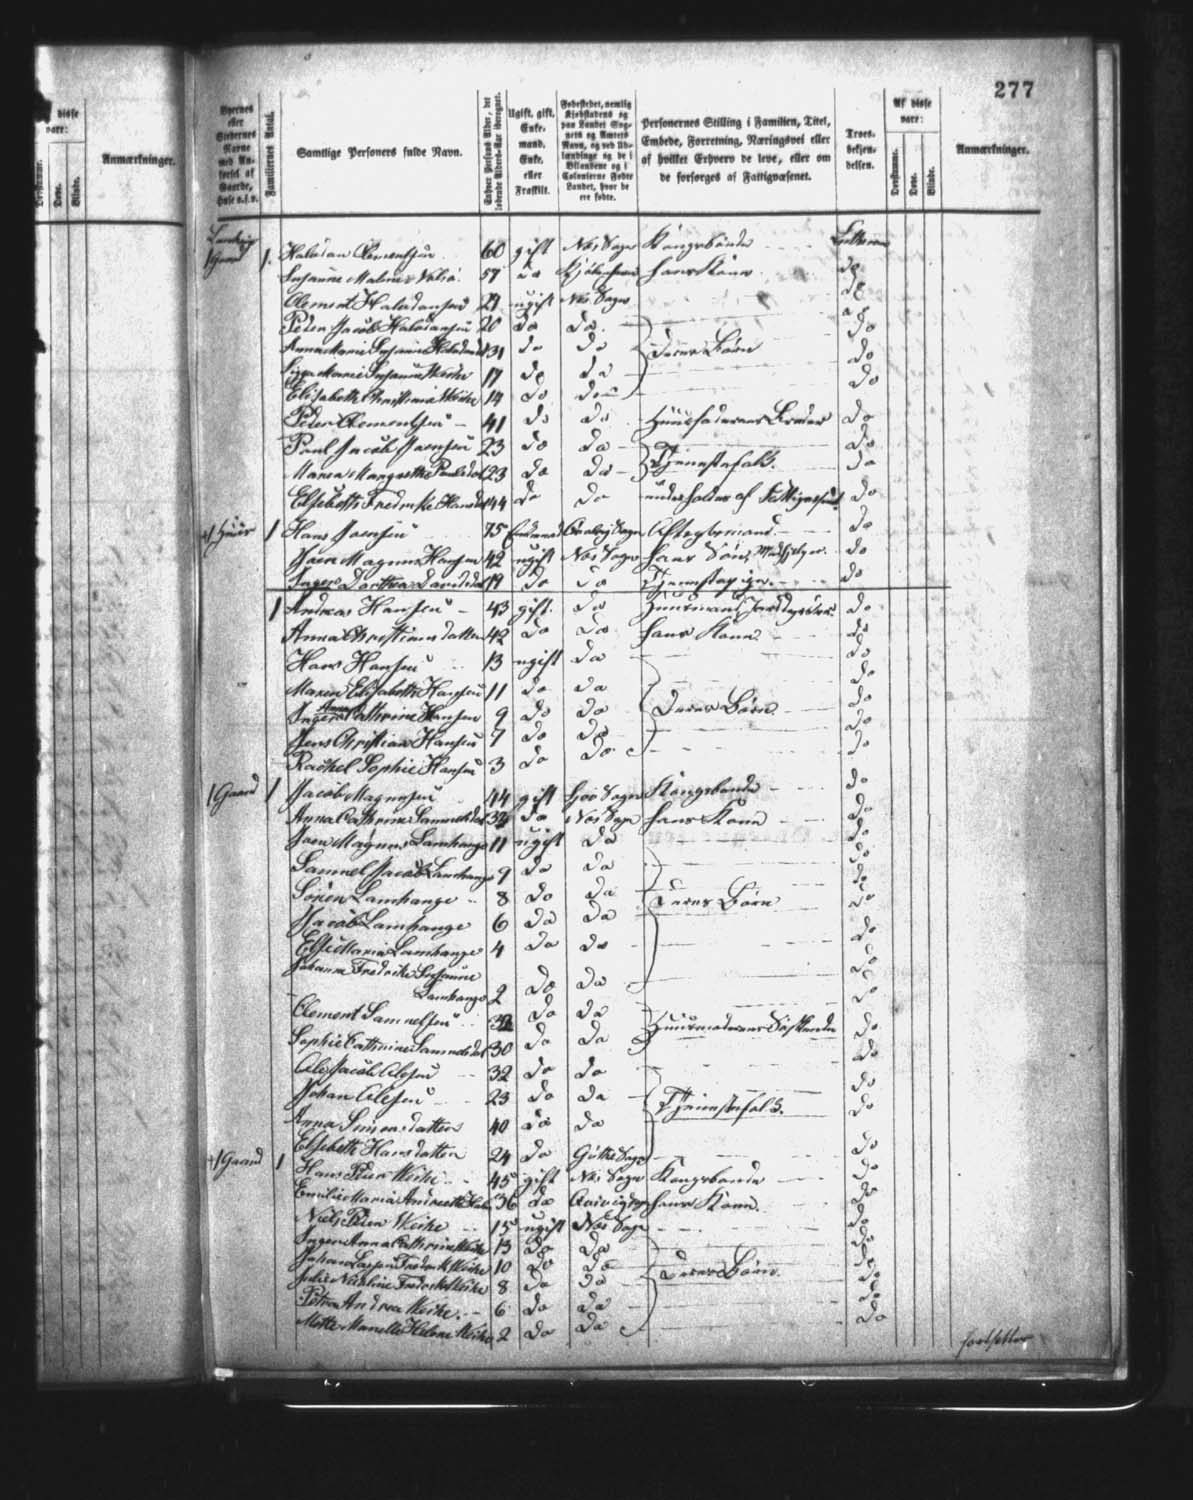 277
disse
vare:
Døvstumme.
Døve.
Blinde.
Anmærkninger.
Byernes eller Stedernes Navne med Anførsel af Gaarde, Huse o.s.v.
Familiernes Antal.
Samtlige Personers fulde Navn.
Enhver Persons Alder, det løbende Alders-Aar iberegnet.
Ugift, gift, Enkemand, Enke, eller Fraskilt.
Fødestedet, nemlig Kjøbstadens og paa Landet Sognets og Amtets Navn, og ved Udlændinge og de i Bilandene og i Colonierne Fødte Landet, hvor de ere fødte.
Personernes Stilling i Familien, Titel, Embede, Forretning, Næringsvei eller af hvilket Erhverv de leve, eller om de forsørges af Fattigvæsenet.
Troesbekjendelsen.
Af disse vare:
Døvstumme.
Døve.
Blinde.
Anmærkninger.
1 Gaard 1. Halvdan Clementsen 60 gift Næs Sogn Kongsbonde Luthersk
Susanne Maline 57 do Kjøbenhavn hans Kone do
Clement Halvdansen 21 ugift Næs Sogn do
Peder Jacob Halvdansen 20 do do do
Anna Marie Susanne Halvdansd 31 do do deres Børn do
Marie Susanne Weihe 17 do do do
Elisabeth Christiane Weihe 14 do do do
Peder Clementsen 41 do do Huusfaderens Broder do
Poul Jacob Joensen 23 do do do
Maren Margrethe Poulsdat 23 do do Tjenestefolk. do
Elsebeth Fredrikke Hansdat 44 do do underholdes af Fattigvæsenet do
1 Huus 1 Hans Joensen 75 Enkemand Sogn Aftægtsmand do
Joen Magnus Hansen 42 ugift Næs Sogn hans Søn, do
Inger Dorthea Davidsdat 19 do do Tjenestepige do
1 Andreas Hansen 43 gift. do Huusmand, do
Anna Christiansdatter 42 do do hans Kone do
Hans Hansen 13 ugift do do
Maren Elisabeth Hansen 11 do do do
Inger Anna Cathrine Hansen 9 do do Deres Børn do
Jens Christian Hansen 7 do do do
Rachel Sophie Hansen 3 do do do
1 Gaard 1 Jacob Magnusen 44 gift Sogn Kongsbonde do
Anna Cathrine Samuelsdat 33 do Næs Sogn hans Kone do
Joen Magnus Lamhauge 11 ugift do do
Samuel Jacob Lamhauge 9 do do do
Sören Lamhauge 8 do do Deres Børn do
Jacob Lamhauge 6 do do
Else Maria Lamhauge 4 do do do
Johanne Fredrikke Susanne
Lamhauge 2 do do do
Clement Samuelsen 32 do do Huusmoderens Søskende do
Sophie Cathrine Samuelsdat 30 do do do
Ole Jacob Olesen 32 do do do
Johan Olesen 23 do do Tjenestefolk. do
Anna Simonsdatter 40 do do do
Elsebeth Hansdatter 24 do Göthe Sogn do
1 Gaard 1 Hans Peter Weihe 45 gift Næs Sogn Kongsbonde do
Emilie Maria Andrea 36 do Qvivig Sogn hans Kone. do
Niels Peter Weihe 15 ugift Næs Sogn do
Inger Anna Cathrine Weihe 13 do do do
Johan Fredrik Weihe 10 do do Deres Børn do
Julie Nicoline Fredrikke Weihe 8 do do do
Petra Andrea Weihe 6 do do do
Helene Weihe 2 do do do
fortsættes